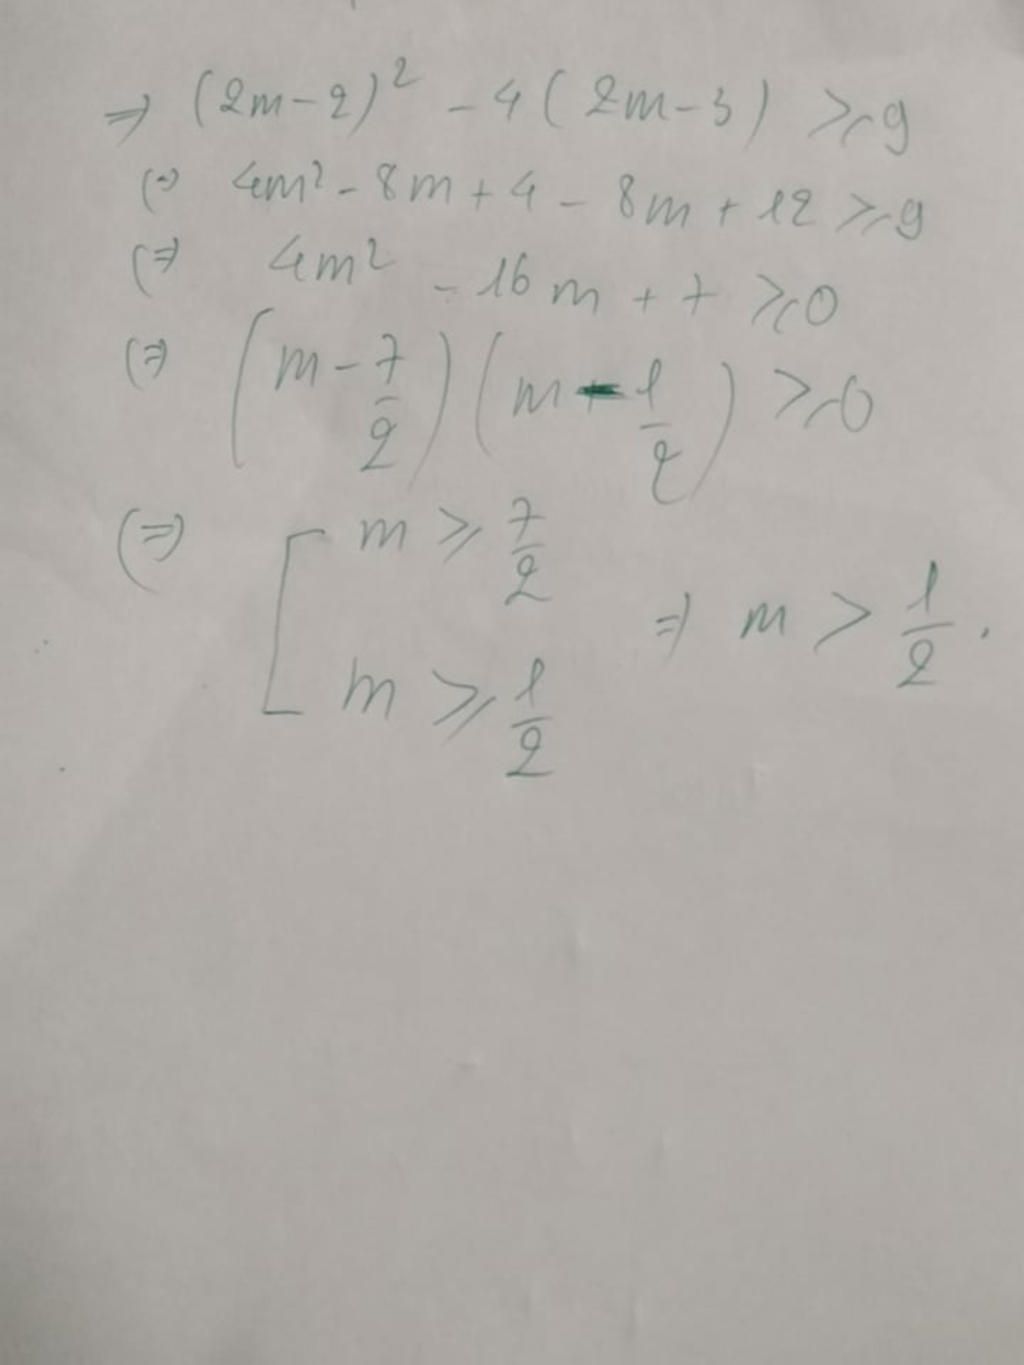 ⇒ (2m-2)² - 4(2m-3) ≥ 9
(⇒ 4m² - 8m + 4 - 8m + 12 ≥ 9
(⇒ 4m² - 16m + 7 ≥ 0
(⇒ (m - 7/2)(m - 1/2) ≥ 0
(⇒) [ m ≥ 7/2
m ≥ 1/2 ⇒ m > 1/2.